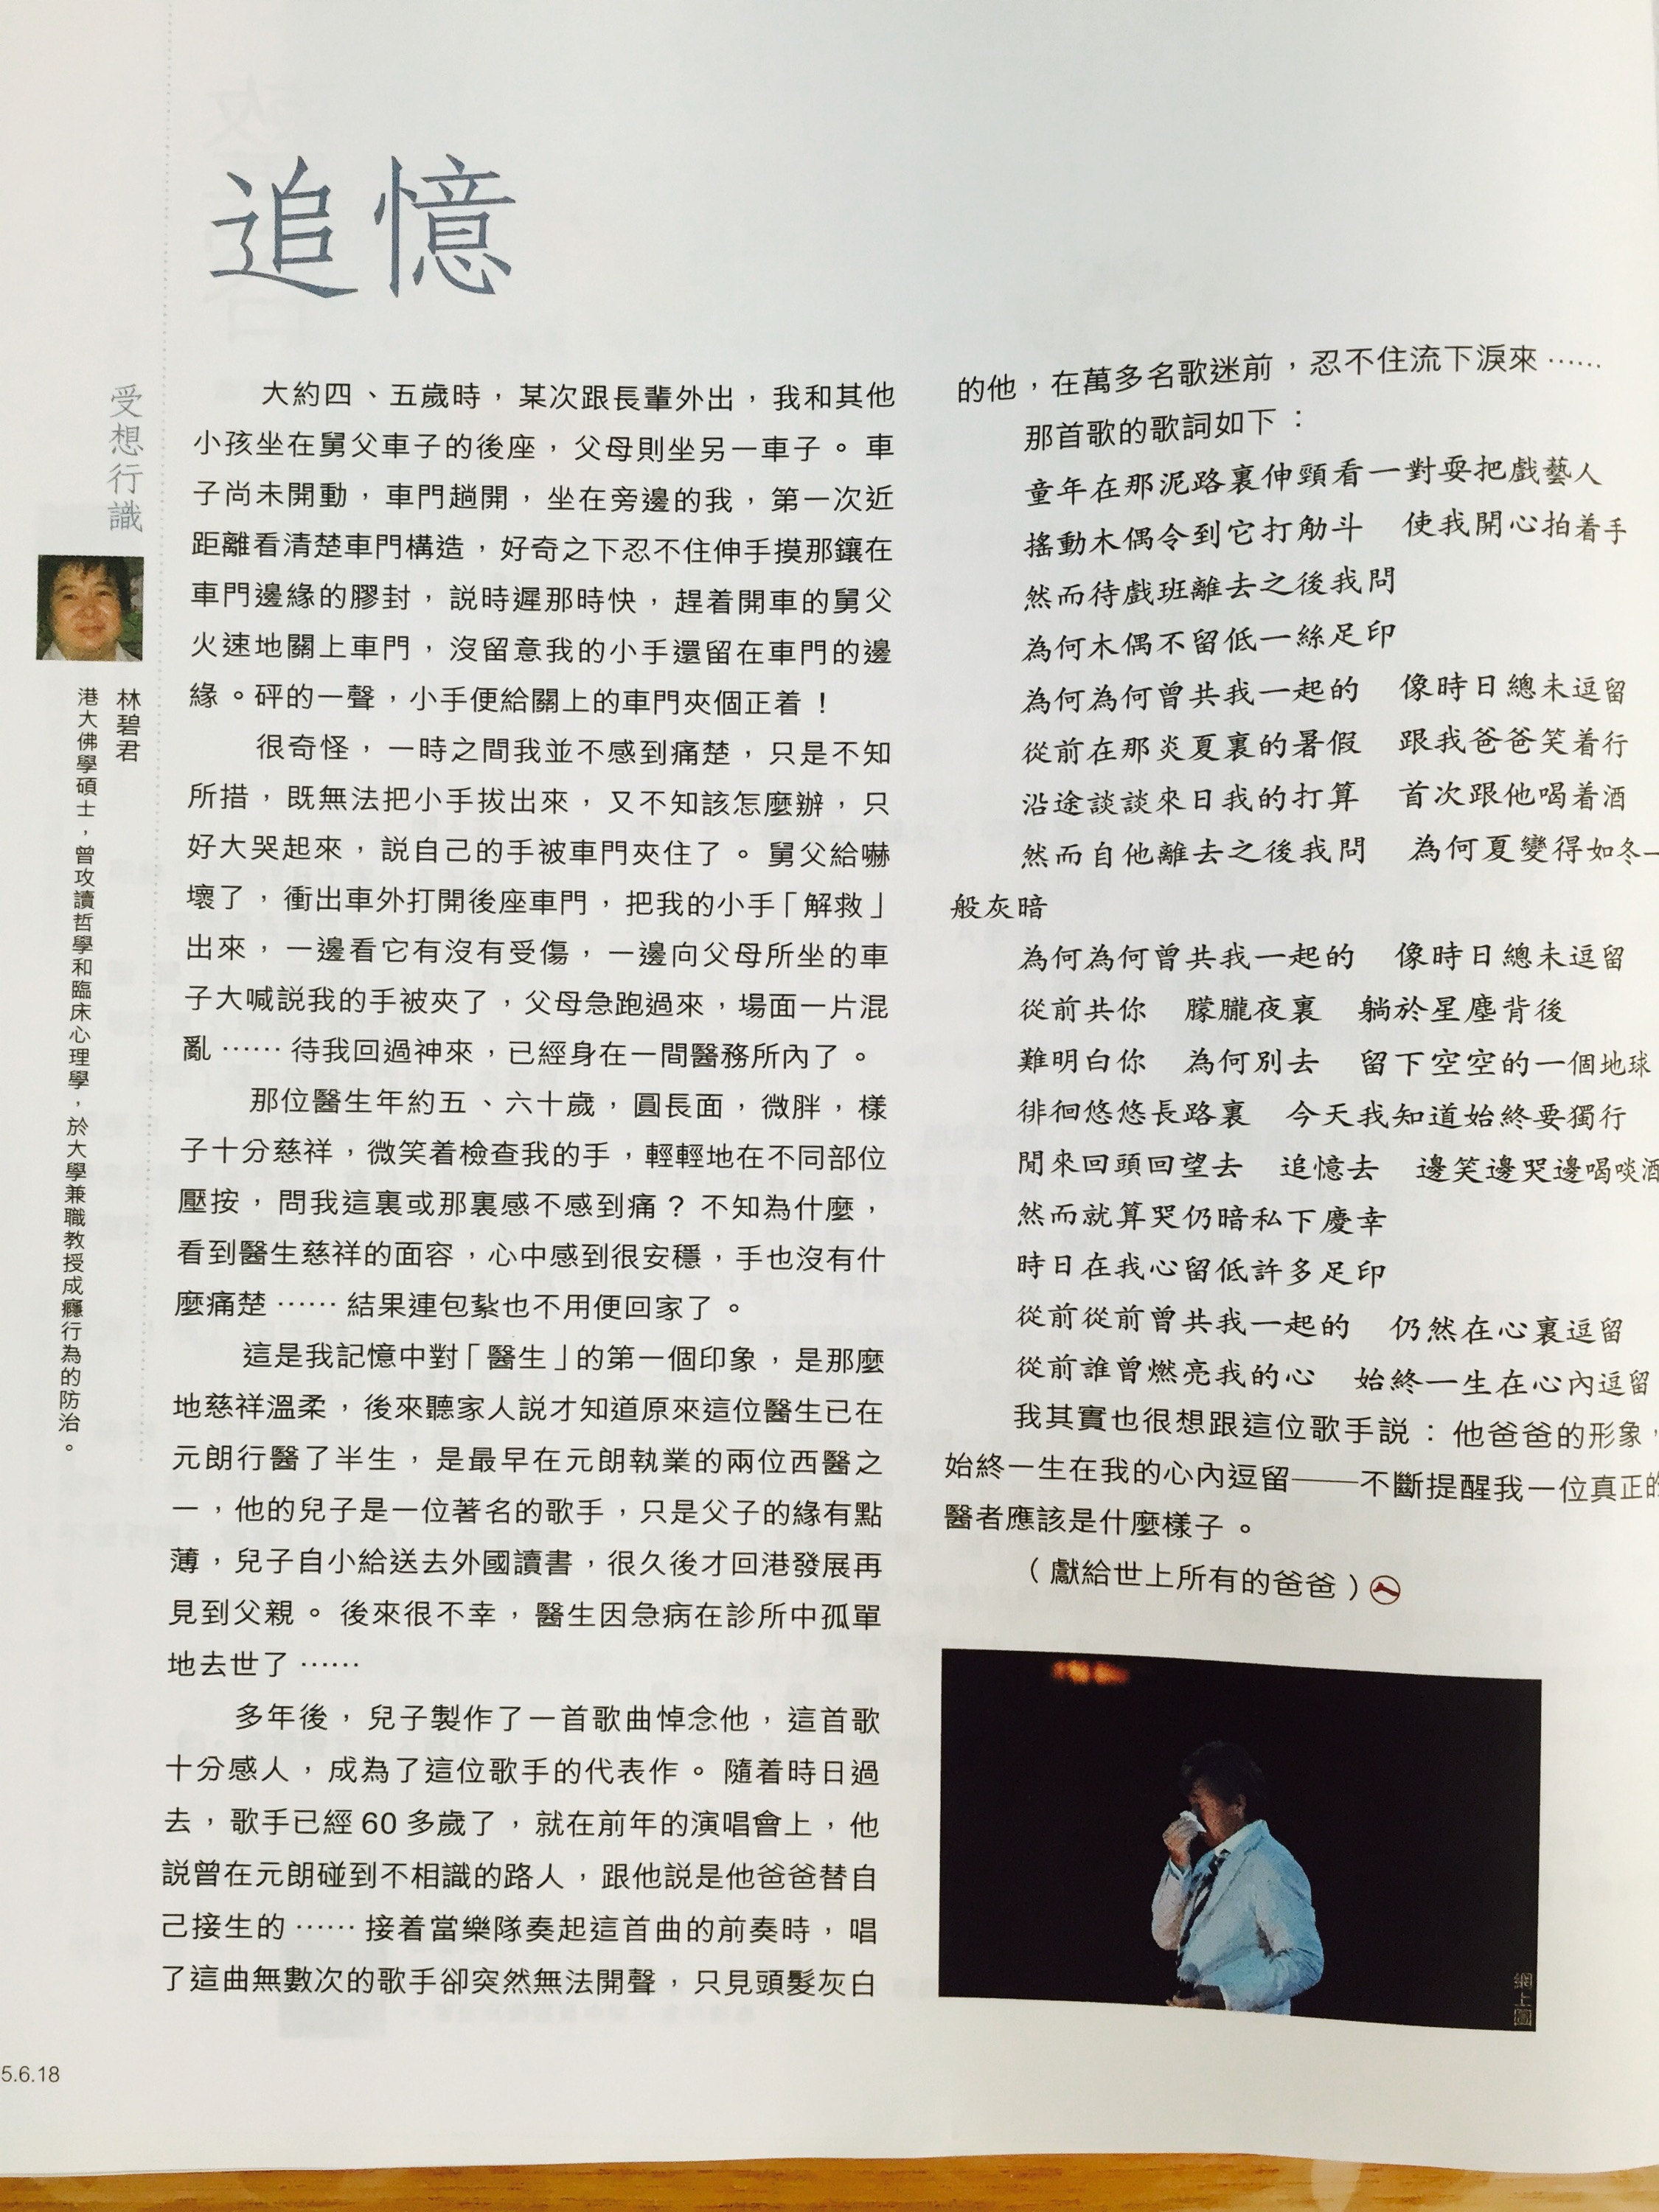 追憶
受想行識
林碧君
港大佛學碩士，曾攻讀哲學和臨床心理學，於大學兼職教授成癮行為的防治。
大約四、五歲時，某次跟長輩外出，我和其他
小孩坐在舅父車子的後座，父母則坐另一車子。車
子尚未開動，車門趟開，坐在旁邊的我，第一次近
距離看清楚車門構造，好奇之下忍不住伸手摸那鑲在
車門邊緣的膠封，説時遲那時快，趕着開車的舅父
火速地關上車門，沒留意我的小手還留在車門的邊
緣。砰的一聲，小手便給關上的車門夾個正着！
很奇怪，一時之間我並不感到痛楚，只是不知
所措，既無法把小手拔出來，又不知該怎麼辦，只
好大哭起來，説自己的手被車門夾住了。舅父給嚇
壞了，衝出車外打開後座車門，把我的小手「解救」
出來，一邊看它有沒有受傷，一邊向父母所坐的車
子大喊説我的手被夾了，父母急跑過來，場面一片混
亂……待我回過神來，已經身在一間醫務所內了。
那位醫生年約五、六十歲，圓長面，微胖，樣
子十分慈祥，微笑着檢查我的手，輕輕地在不同部位
壓按，問我這裏或那裏感不感到痛？不知為什麼，
看到醫生慈祥的面容，心中感到很安穩，手也沒有什
麼痛楚……結果連包紮也不用便回家了。
這是我記憶中對「醫生」的第一個印象，是那麼
地慈祥溫柔，後來聽家人説才知道原來這位醫生已在
元朗行醫了半生，是最早在元朗執業的兩位西醫之
一，他的兒子是一位著名的歌手，只是父子的緣有點
薄，兒子自小給送去外國讀書，很久後才回港發展再
見到父親。後來很不幸，醫生因急病在診所中孤單
地去世了……
多年後，兒子製作了一首歌曲悼念他，這首歌
十分感人，成為了這位歌手的代表作。隨着時日過
去，歌手已經60多歲了，就在前年的演唱會上，他
説曾在元朗碰到不相識的路人，跟他説是他爸爸替自
己接生的……接着當樂隊奏起這首曲的前奏時，唱
了這曲無數次的歌手卻突然無法開聲，只見頭髮灰白
的他，在萬多名歌迷前，忍不住流下淚來……
那首歌的歌詞如下：
童年在那泥路裏伸頸看一對耍把戲藝人
搖動木偶令到它打觔斗　使我開心拍着手
然而待戲班離去之後我問
為何木偶不留低一絲足印
為何為何曾共我一起的　像時日總未逗留
從前在那炎夏裏的暑假　跟我爸爸笑着行
沿途談談來日我的打算　首次跟他喝着酒
然而自他離去之後我問　為何夏變得如冬一
般灰暗
為何為何曾共我一起的　像時日總未逗留
從前共你　朦朧夜裏　躺於星塵背後
難明白你　為何別去　留下空空的一個地球
徘徊悠悠長路裏　今天我知道始終要獨行
閒來回頭回望去　追憶去　邊笑邊哭邊喝啖酒
然而就算哭仍暗私下慶幸
時日在我心留低許多足印
從前從前曾共我一起的　仍然在心裏逗留
從前誰曾燃亮我的心　始終一生在心內逗留
我其實也很想跟這位歌手説：他爸爸的形象，
始終一生在我的心內逗留——不斷提醒我一位真正的
醫者應該是什麼樣子。
（獻給世上所有的爸爸）
網上圖
5.6.18